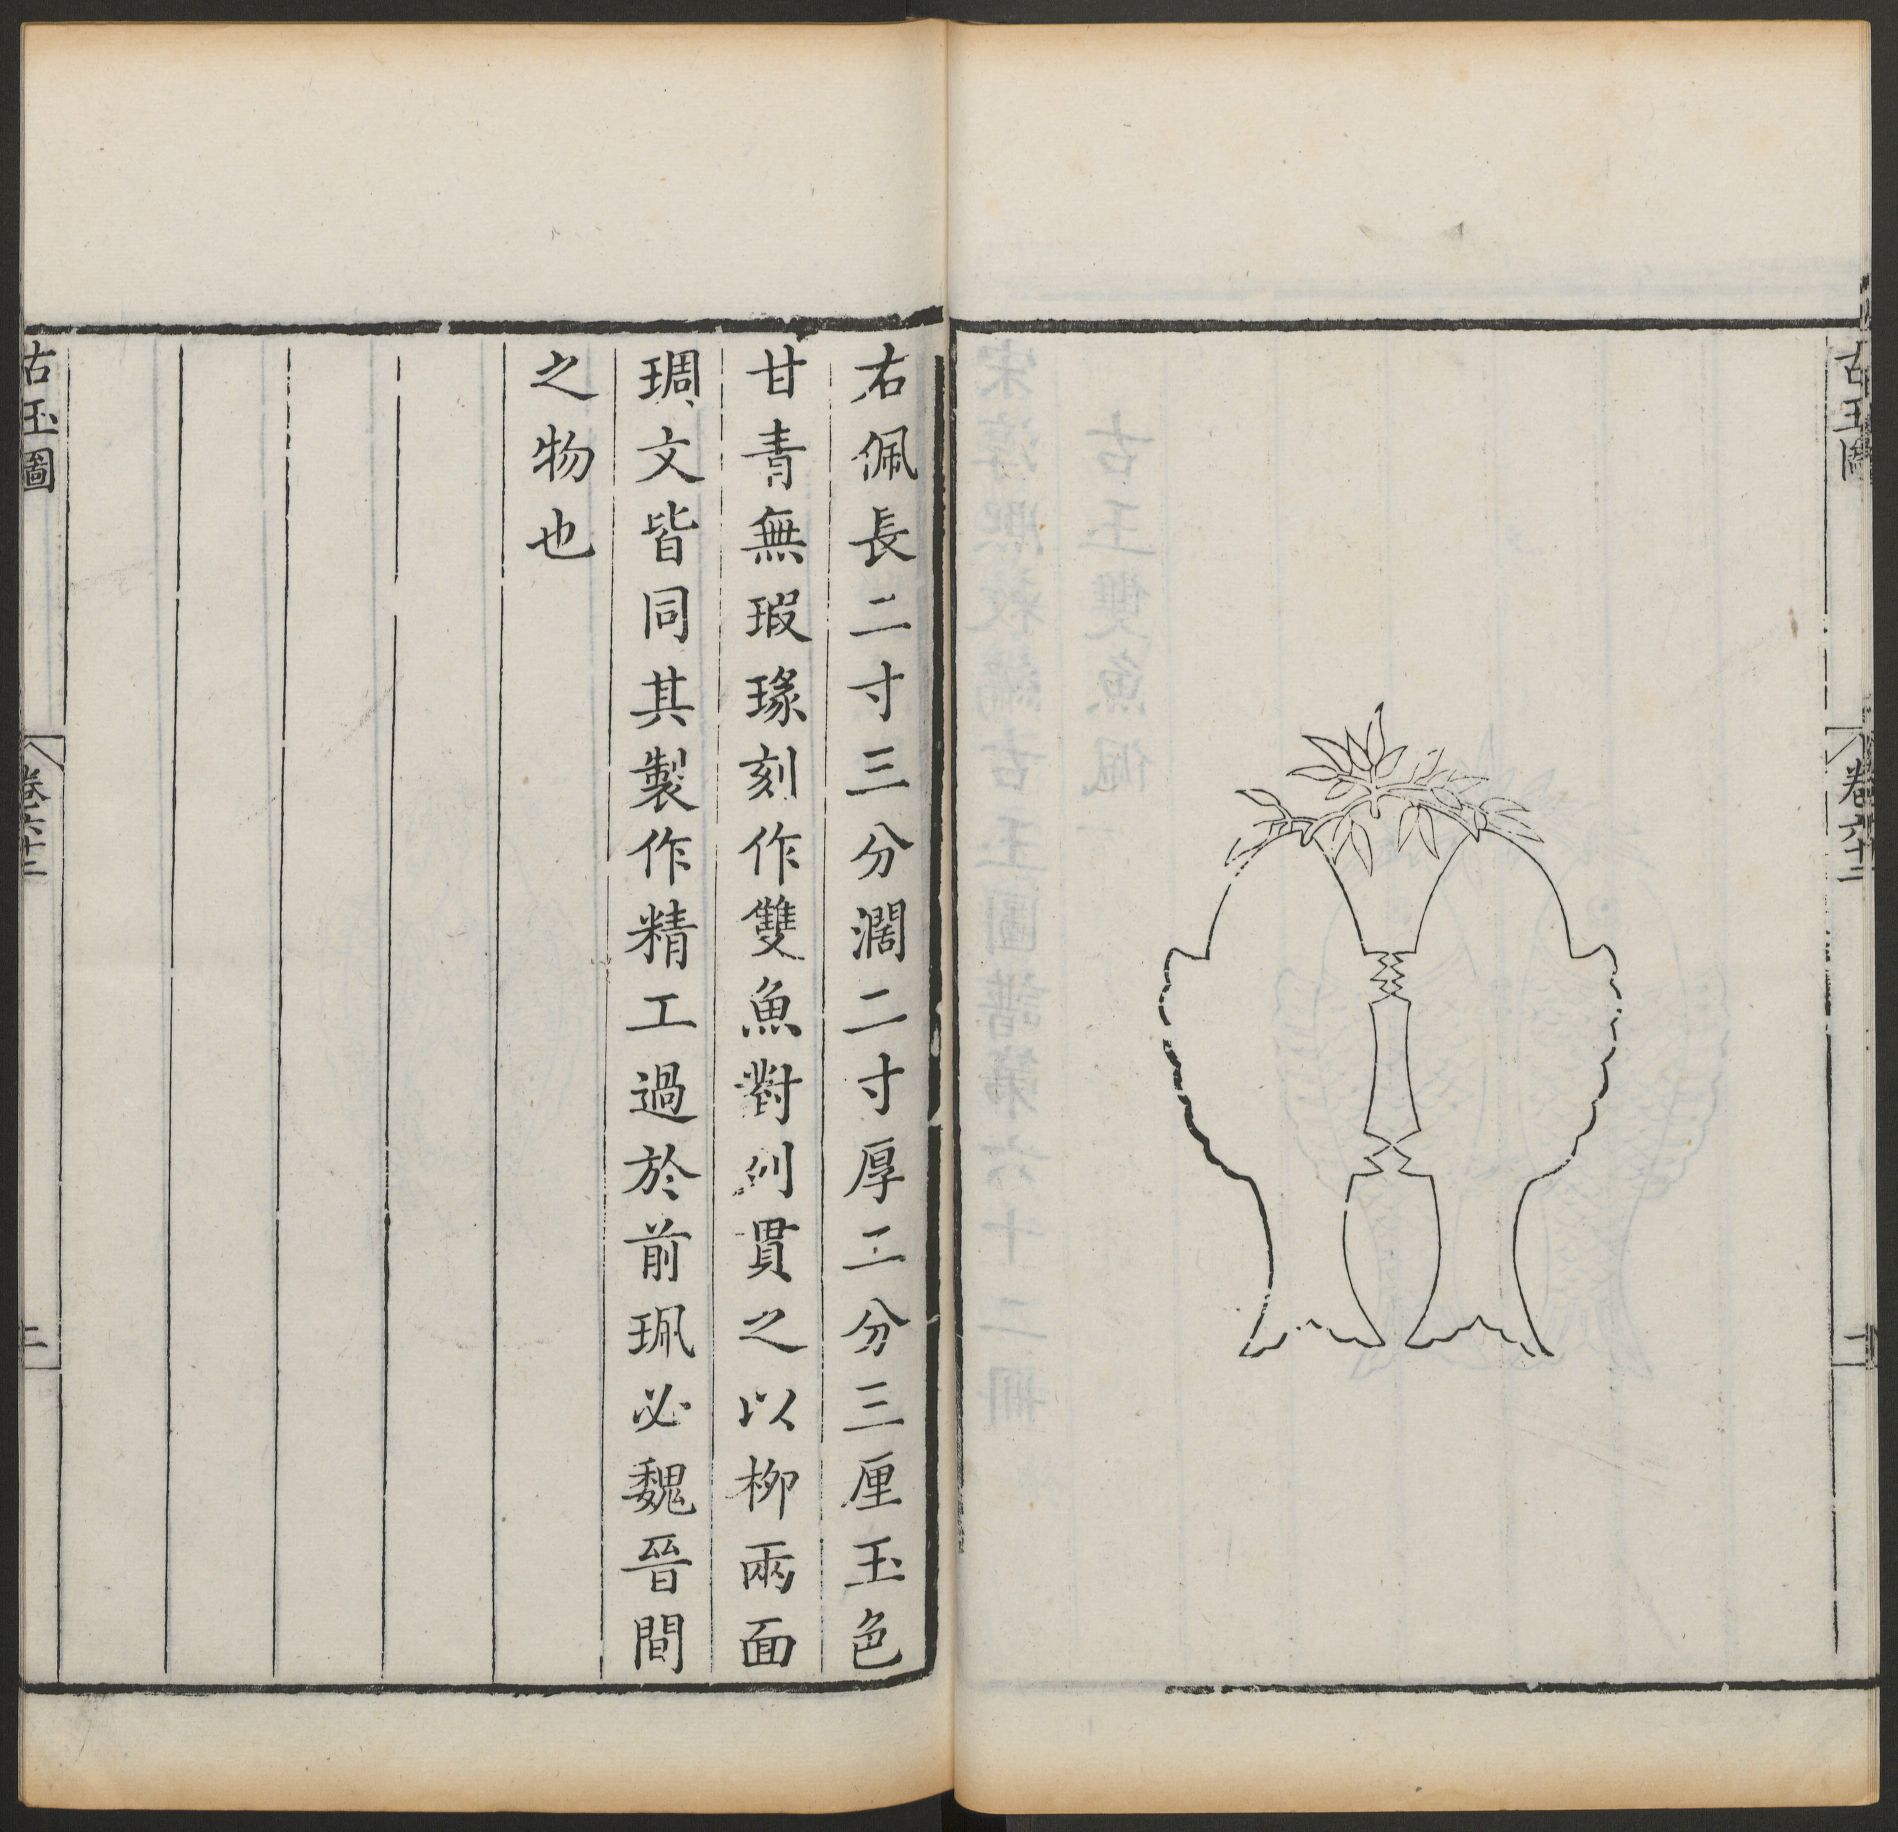 古玉圖
卷六十二
一
右佩長二寸三分濶二寸厚二分三厘玉色
甘青無瑕瑑刻作雙魚對列貫之以柳兩面
琱文皆同其製作精工過於前珮必魏晉間
之物也
古玉圖
卷六十二
二